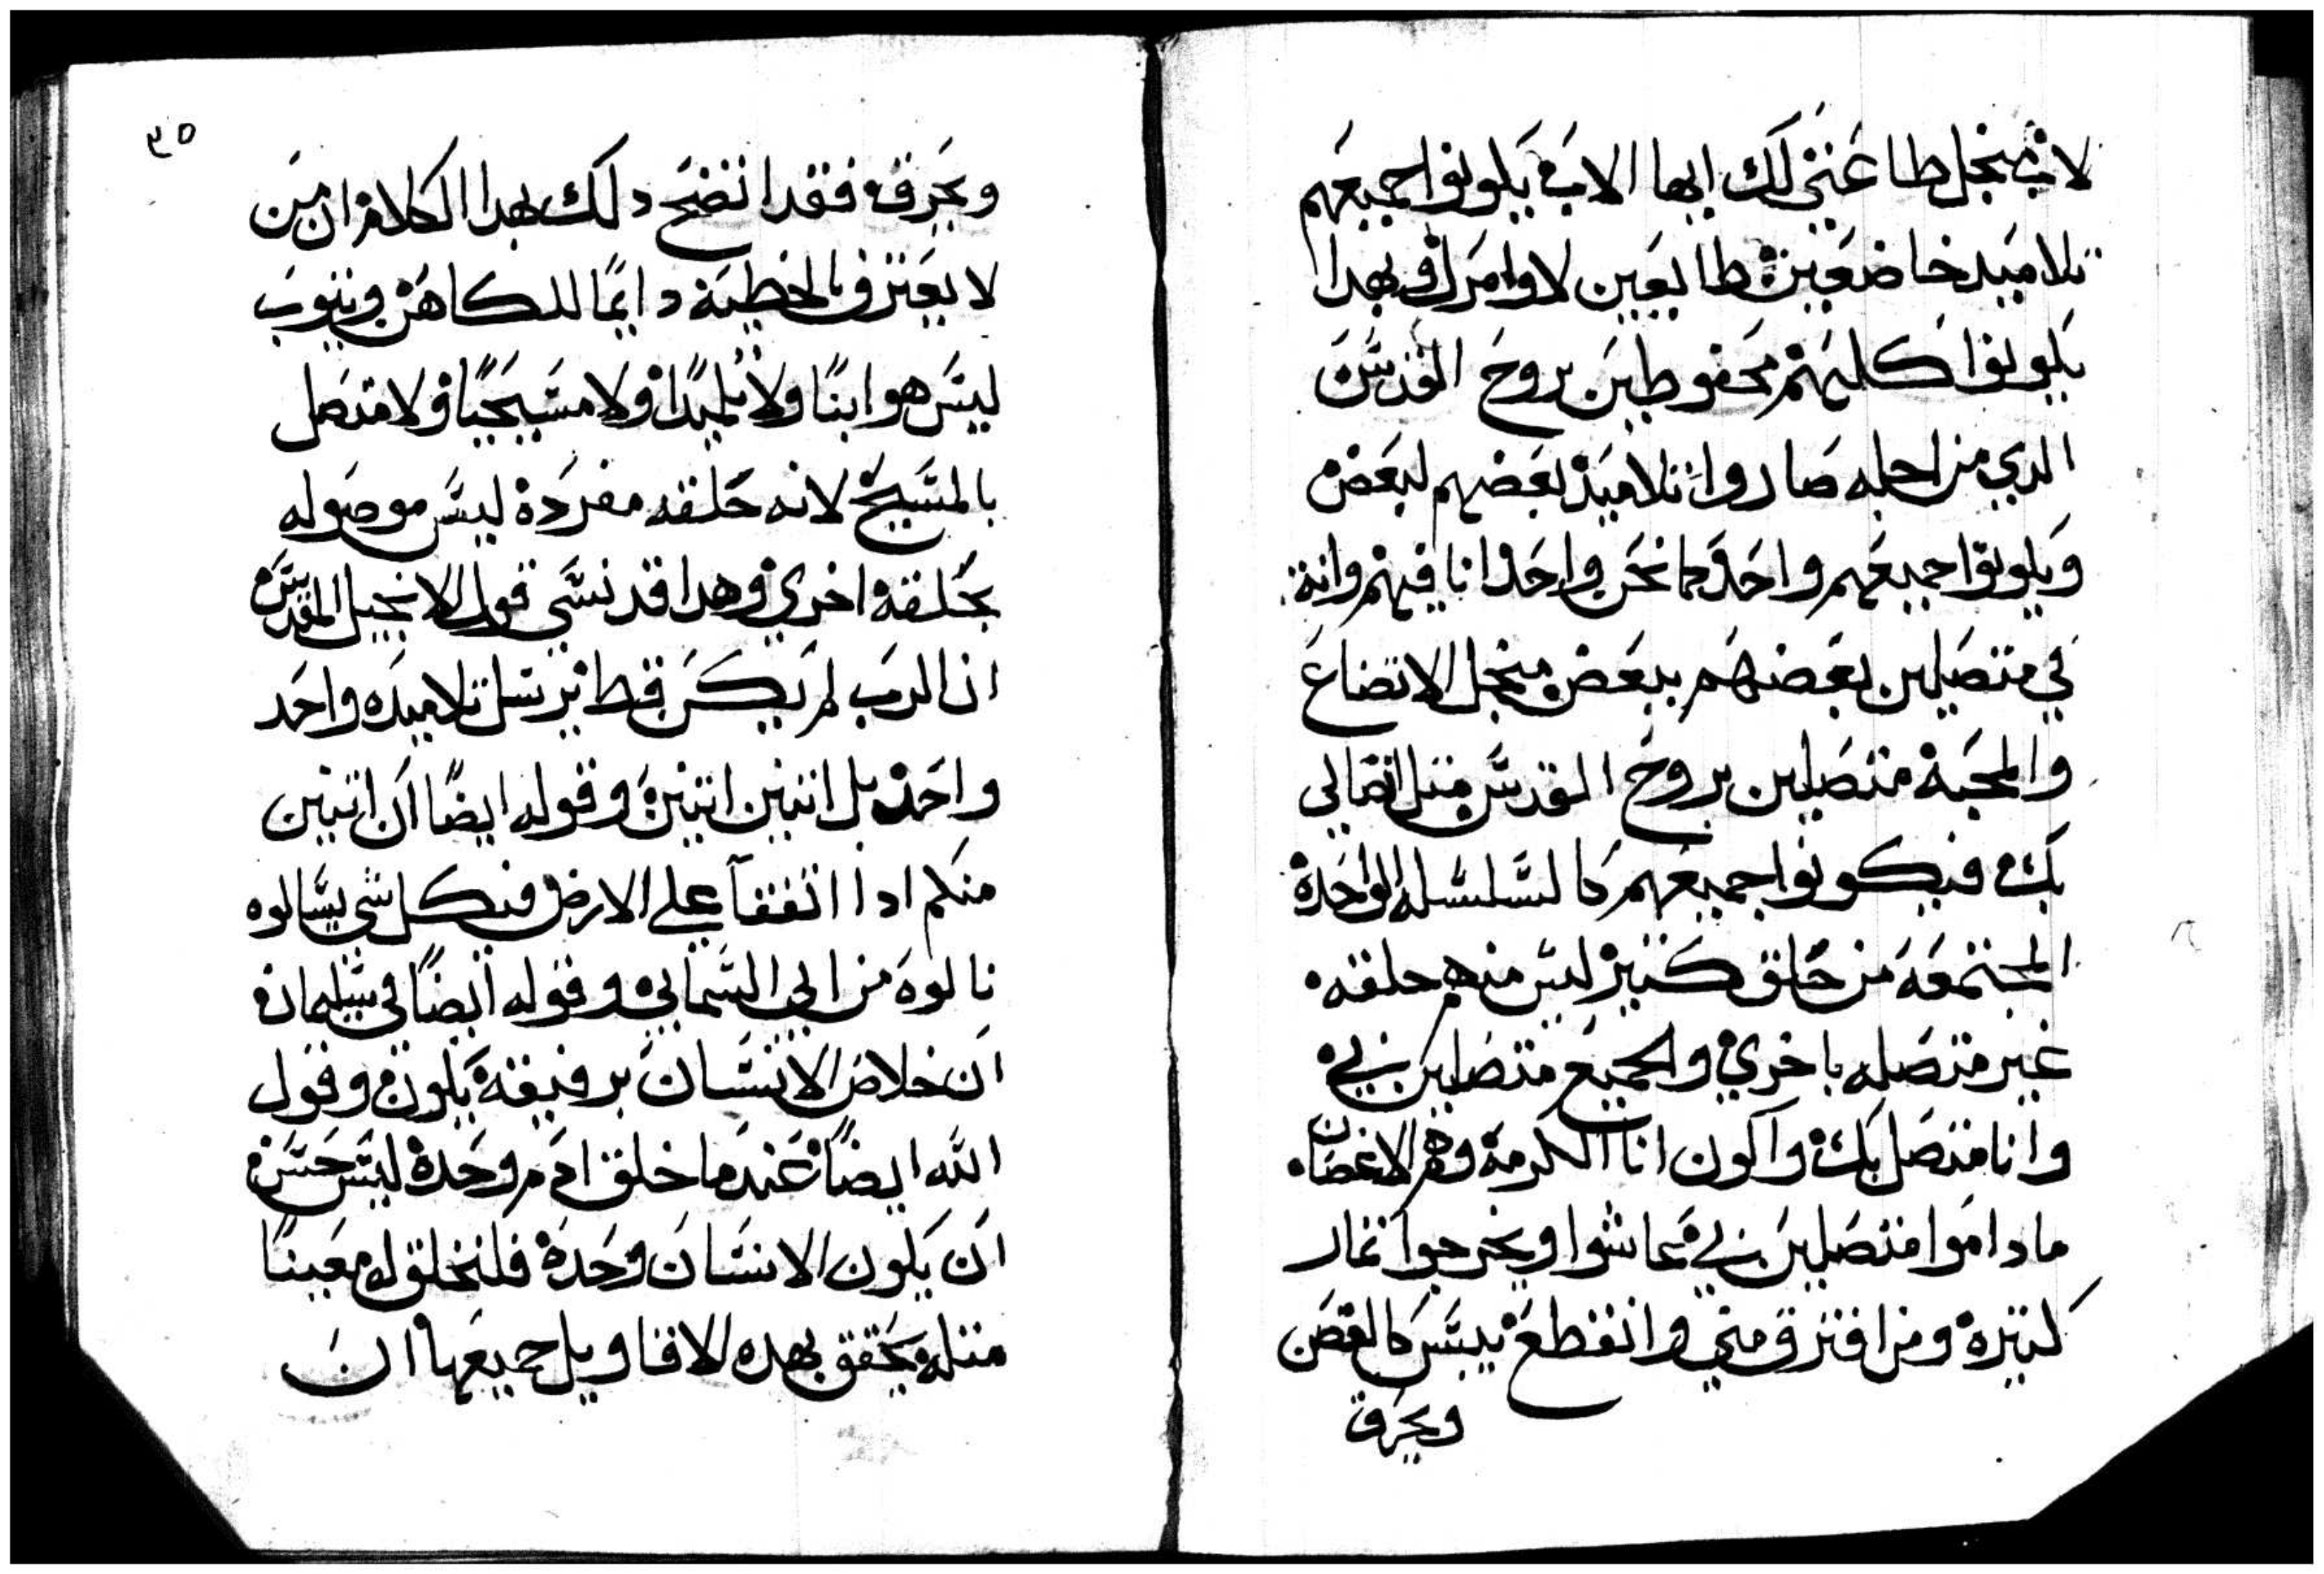 لان منجل طاعتي لك ايها الاب يكونوا جميعهم
تلاميد خاضعين طايعين لاوامرك وبهدا
يكونوا كليهم محفوطين بروح القدس
الدي من اجله صاروا تلاميد بعضهم لبعض
ويكونوا جميعهم واحد كما نحن واحد انا فيهم وانة
في متصلين بعضهم ببعض منجل الاتضاع
والمحبة متصلين بروح القدس متل اتصالي
بك فيكونوا جميعهم كالسلسله الواحدة
المجتمعة من حلق كتير ليس منهم حلقه
غير متصله باخري والجميع متصلين بي
وانا متصل بك واكون انا الكرمة وهم الاغصان
ما داموا متصلين بي عاشوا ويخرجوا تمار
كتيرة ومن افترق مني وانقطع ييبس كالغصن
ويحرق
٣٥
ويحرق فقد اتضح دلك بهدا الكلام ان من
لا يعترف بالخطية دايمًا للكاهن ويتوب
ليس هو ابنًا ولا تلميدًا ولا مسيحيًا ولا متصل
بالمسيح لانه حلقه مفردة ليس موصوله
بحلقه اخري وهدا قد نسي قول الانجيل المقدس
ان الرب لم يكن قط يرسل تلاميده واحد
واحد بل اتنين اتنين وقوله ايضًا ان اتنين
منكم ادا اتفقا علي الارض فبكل شي يسالوه
نالوه من ابي السمايي وقوله ايضًا في سليمان
ان خلاص الانسان برفيقه يكون وقول
الله ايضًا عندما خلق ادم وحدة ليس حسن
ان يكون الانسان وحدة فلنخلق له معينًا
متله يحقق بهده الاقاويل جميعها ان